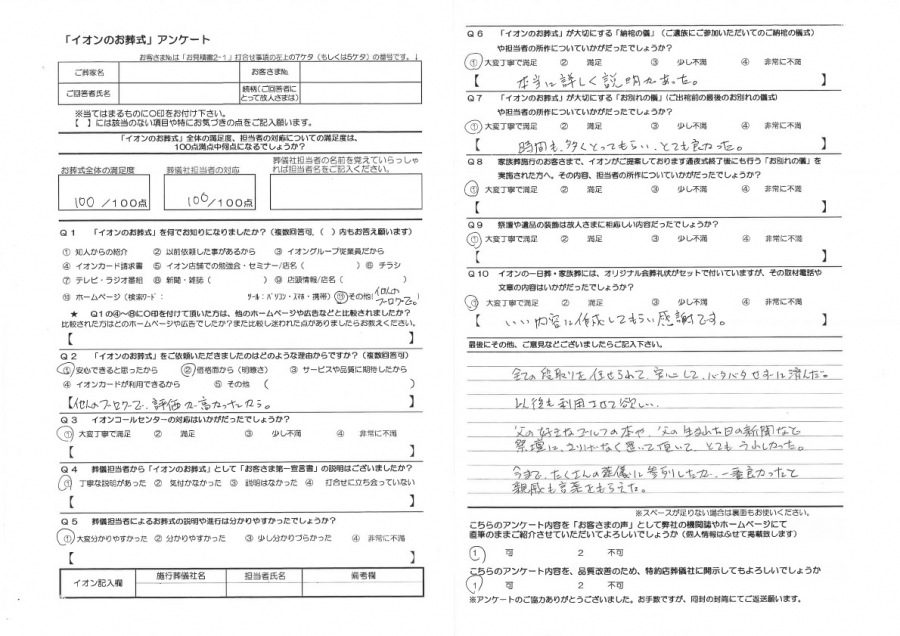 「イオンのお葬式」アンケート
お客さま№は「お見積書2-1」打合せ事項の左上の7ケタ（もしくは5ケタ）の番号です。↓
ご葬家名 お客さま№
ご回答者氏名 続柄（ご回答者にとって故人さまは）
※当てはまるものに○印をお付け下さい。
【　】には該当のない項目や特にお気づきの点をご記入願います。
「イオンのお葬式」全体の満足度、担当者の対応についての満足度は、
100点満点中何点になるでしょうか？
お葬式全体の満足度 葬儀社担当者の対応 葬儀社担当者の名前を覚えていらっしゃれば担当者名をご記入ください。
100/100点 100/100点
Q1 「イオンのお葬式」を何でお知りになりましたか？（複数回答可、（ ）内もお答え願います）
① 知人からの紹介 ② 以前依頼した事があるから ③ イオングループ従業員だから
④ イオンカード請求書 ⑤ イオン店舗での勉強会・セミナー/店名（ ） ⑥ チラシ
⑦ テレビ・ラジオ番組 ⑧ 新聞・雑誌（ ） ⑨ 店頭情報/店名（ ）
⑩ ホームページ（検索ワード： ツール：パソコン・スマホ・携帯） ⑪その他（他人のブログで。）
★ Q1の④～⑩に○印を付けて頂いた方は、他のホームページや広告などと比較されましたか？
比較された方はどのホームページや広告でしたか？また比較し迷われた点がありましたらお教えください。
【 】
Q2 「イオンのお葬式」をご依頼いただきましたのはどのような理由からですか？（複数回答可）
① 安心できると思ったから ② 価格面から（明瞭さ） ③ サービスや品質に期待したから
④ イオンカードが利用できるから ⑤ その他 （ ）
【他人のブログで、評価が高かったから。 】
Q3 イオンコールセンターの対応はいかがだったでしょうか？
① 大変丁寧で満足 ② 満足 ③ 少し不満 ④ 非常に不満
【 】
Q4 葬儀担当者から「イオンのお葬式」として「お客さま第一宣言書」の説明はございましたか？
① 丁寧な説明があった ② 気付かなかった ③ 説明はなかった ④ 打合せに立ち会っていない
【 】
Q5 葬儀担当者によるお葬式の説明や進行は分かりやすかったでしょうか？
① 大変分かりやすかった ② 分かりやすかった ③ 少し分かりづらかった ④ 非常に不満
【 】
イオン記入欄 施行葬儀社名 担当者氏名 備考欄
Q6 「イオンのお葬式」が大切にする「納棺の儀」（ご遺族にご参加いただいてのご納棺の儀式）
や担当者の所作についていかがだったでしょうか？
① 大変丁寧で満足 ② 満足 ③ 少し不満 ④ 非常に満足
【 本当に詳しく説明があった。 】
Q7 「イオンのお葬式」が大切にする「お別れの儀」（ご出棺前の最後のお別れの儀式）
や担当者の所作についていかがだったでしょうか？
① 大変丁寧で満足 ② 満足 ③ 少し不満 ④ 非常に不満
【 時間も、多くとってもらい、とても良かった。 】
Q8 家族葬施行のお客さまで、イオンがご提案しております通夜式終了後にも行う「お別れの儀」を
実施された方へ。その内容、担当者の所作についていかがだったでしょうか？
① 大変丁寧で満足 ② 満足 ③ 少し不満 ④ 非常に不満
【 】
Q9 祭壇や遺品の装飾は故人さまに相応しい内容だったでしょうか？
① 大変丁寧で満足 ② 満足 ③ 少し不満 ④ 非常に不満
【 】
Q10 イオンの一日葬・家族葬には、オリジナル会葬礼状がセットで付いていますが、その取材電話や
文章の内容はいかがだったでしょうか？
① 大変丁寧で満足 ② 満足 ③ 少し不満 ④ 非常に不満
【 いい内容に作成してもらい感謝です。 】
最後にその他、ご意見などございましたらご記入下さい。
全ての段取りを任せられて、安心して、バタバタせずに済んだ。
以後も利用させて欲しい。
父の好きなゴルフの本や、父の生まれた日の新聞など
祭壇に、さりげなく置いて頂いて、とてもうれしかった。
今まで、たくさんの葬儀に参列したが、一番良かったと
親戚も言葉をもらえた。
※スペースが足りない場合は裏面もお使いください。
こちらのアンケート内容を「お客さまの声」として弊社の機関誌やホームページにて
直筆のままご紹介させていただいてよろしいでしょうか（個人情報はふせて掲載致します）
1 可 2 不可
こちらのアンケート内容を、品質改善のため、特約店葬儀社に開示してもよろしいでしょうか
1 可 2 不可
※アンケートのご協力ありがとうございました。お手数ですが、同封の封筒にてご返送願います。